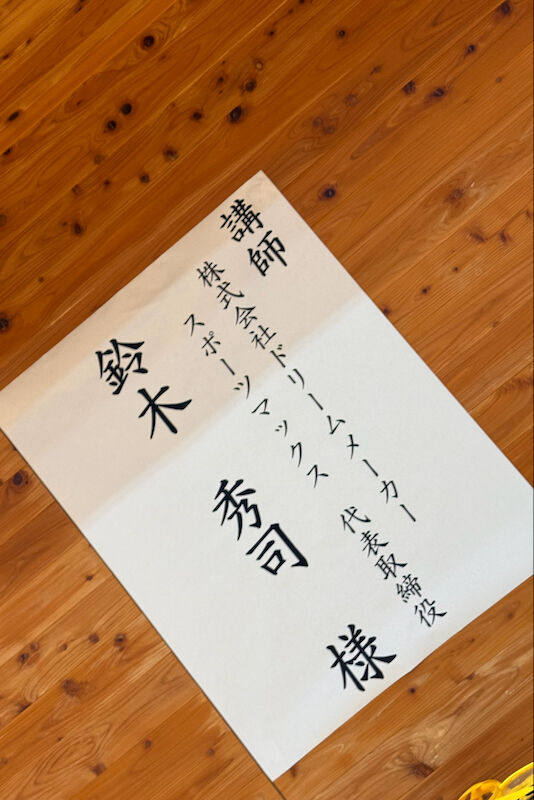 講師
株式会社ドリームメーカー
スポーツマックス 代表取締役
鈴木 秀司 様